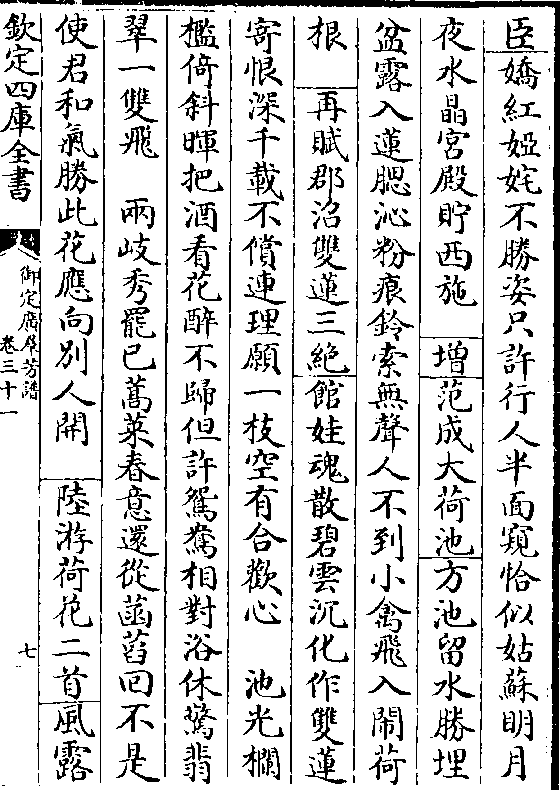 臣嬌紅婭姹不勝姿只許行人半面窺恰似姑蘇明月
夜水晶宮殿貯西施 增范成大荷池方池留水勝埋
盆露入蓮腮沁粉痕鈴索無聲人不到小禽飛入鬧荷
根 再賦郡沼雙蓮三絶館娃魂散碧雲沉化作雙蓮
寄恨深千載不償連理願一枝空有合歡心 池光欄
檻倚斜暉把酒看花醉不歸但許鴛鴦相對浴休驚翡
翠一雙飛 兩岐秀罷已蒿萊春意還從菡萏回不是
使君和氣勝此花應向別人開 陸游荷花二首風露
欽定四庫全書
御定廣羣芳譜
卷三十一
七